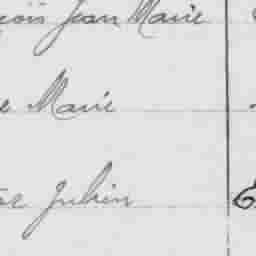 çois Jean Marie
e Marie
re Julien